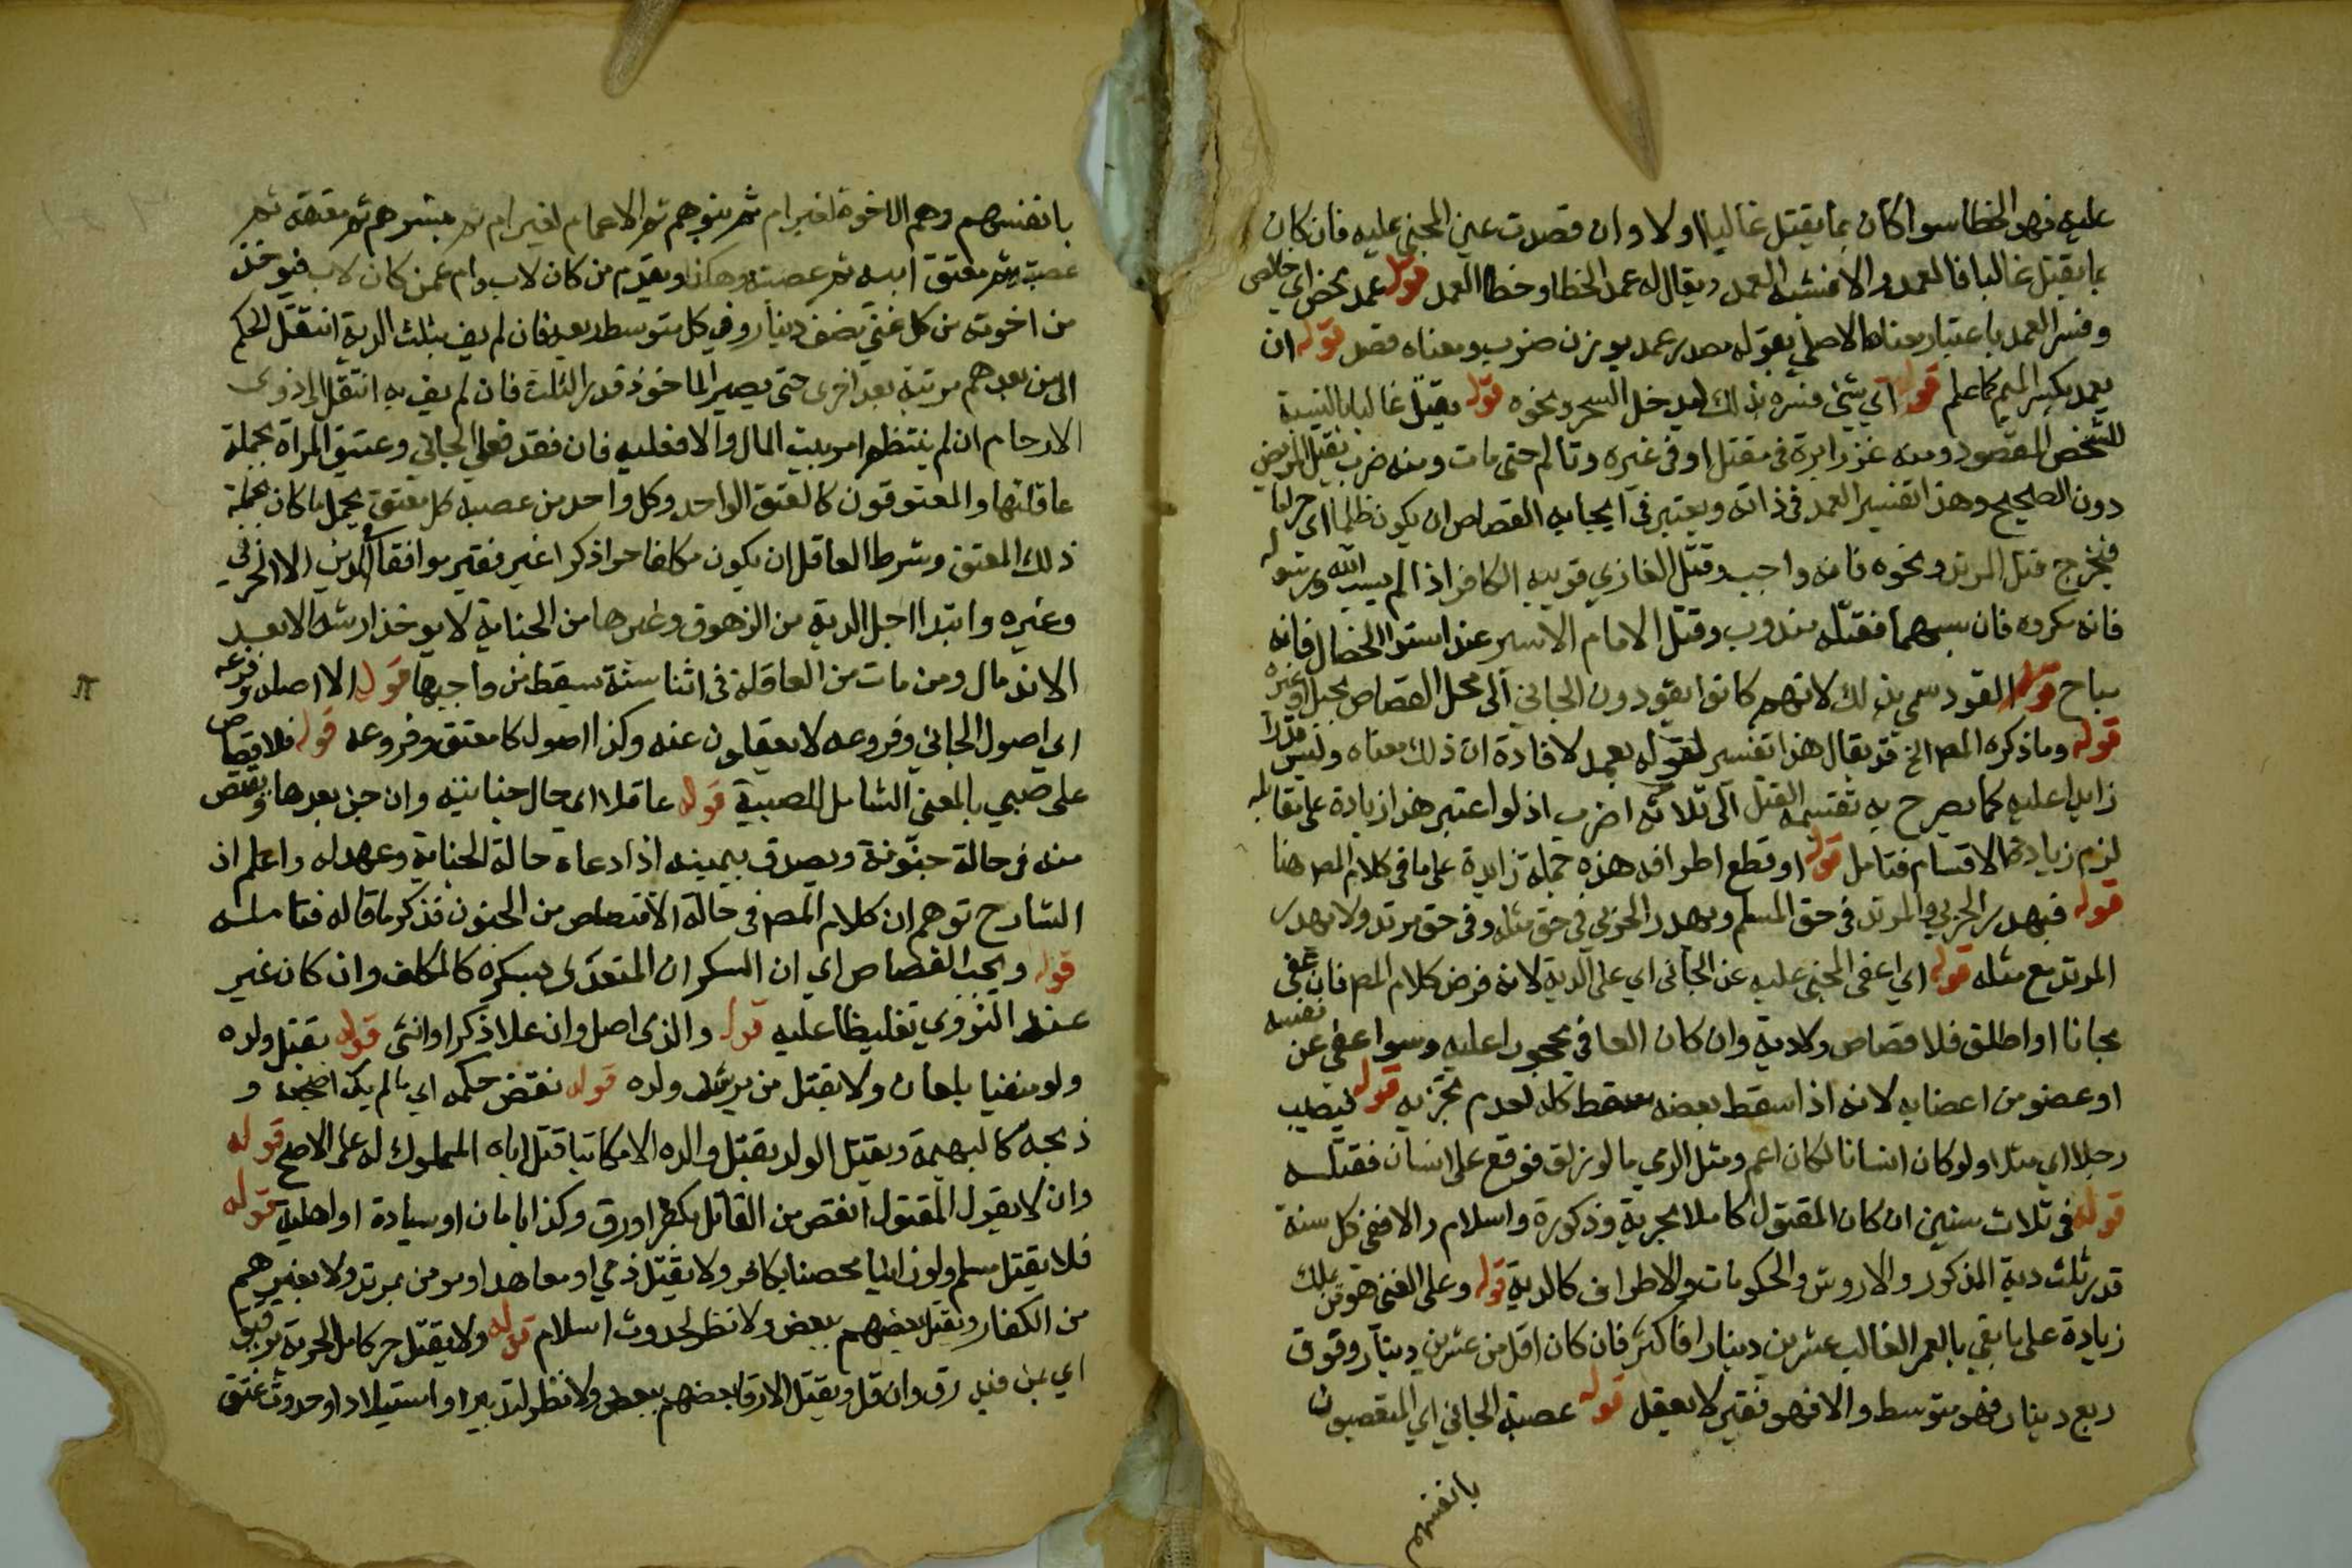 عليه فهو الخطا سوا كان بما يقتل غالبا اولا وان قصدت عين المجني عليه فان كان
بما يقتل غالبا فالعمد والا فشبه العمد ويقال له عمد الخطا وخطا العمد قوله عمد محض اي خالص
وفسر العمد باعتبار معناه الاصلي بقوله مصدر عمد بوزن ضرب ومعناه قصد قوله ان
يعمد بكسر الميم كما علم قوله اي شي فسره بذلك ليدخل السحر ونحوه قوله يقتل غالبا بالنسبة
للشخص المقصود ومنه غرز ابرة في مقتل او في غيره وتالم حتى مات ومنه ضرب يقتل المريض
دون الصحيح وهذا تفسير العمد في ذاته ويعتبر في ايجابه القصاص ان يكون ظلما اي حراما
فيخرج قتل المرتد ونحوه فانه واجب وقتل الغازي قريبه الكافر اذا لم يسب الله ورسوله
فانه مكروه فان سبهما فقتله مندوب وقتل الامام الاسير عند استوا الخصال فانه
مباح قوله القود سمي بذلك لانهم كانوا يقودون الجاني الى محل القصاص بحبل او غيره
قوله وما ذكره المص الخ قد يقال هذا تفسير لقوله يعمد لافادة ان ذلك معناه وليس قدرا
زايدا عليه كما يصرح به تقسيمه القتل الى ثلاثة اضرب اذ لو اعتبر هذا زيادة على مقابله
لزم زيادة الاقسام فتامل قوله او قطع اطرافه هذه جملة زايدة على ما في كلام المص هنا
قوله فيهدر الحربي والمرتد في حق المسلم ويهدر الحربي في حق مثله وفي حق مرتد ولا يهدر
المرتد مع مثله قوله اي اعفى المجني عليه عن الجاني اي على الدية لانه فرض كلام المص فان عفى
مجانا او اطلق فلا قصاص ولا دية وان كان العافي محجورا عليه وسوا عفى عن نفسه
او عضو من اعضايه لانه اذا سقط بعضه سقط كله لعدم تجزيه قوله فيصيب
رجلا اي مثلا ولو كان انسانا لكان اعم ومثل الرمي ما لو زلق فوقع على انسان فقتله
قوله في ثلاث سنين ان كان المقتول كاملا بحرية وذكورة واسلام والا ففي كل سنة
قدر ثلث دية المذكور والاروش والحكومات والاطراف كالدية قوله وعلى الغني هو من ملك
زيادة على ما بقي بالعمر الغالب عشرين دينارا فاكثر فان كان اقل من عشرين دينارا وفوق
ربع دينار فهو متوسط والا فهو فقير لا يعقل قوله عصبة الجاني اي المتعصبون
بانفسهم
بانفسهم وهم الاخوة لغير ام ثم بنوهم ثم الاعمام لغير ام ثم بنوهم ثم معتقه ثم
عصبته ثم معتق ابيه ثم عصبته وهكذا ويقدم من كان لاب وام عمن كان لاب فيوخذ
من اخوته من كل غني نصف دينار وفي كل متوسط ربعه فان لم يف بثلث الدية انتقل الحكم
الى من بعدهم مرتبة بعد اخرى حتى يصير الماخوذ قدر الثلث فان لم يف به انتقل الى ذوي
الارحام ان لم ينتظم امر بيت المال والا فعليه فان فقد فعلى الجاني وعتيق المراة يحمله
عاقلتها والمعتوقون كالعتق الواحد وكل واحد من عصبه كل معتق يحمل ما كان يحمله
ذلك المعتق وشرط العاقل ان يكون مكلفا حرا ذكرا غير فقير موافقا في الدين الا الحربي
وغيره وابتدا اجل الدية من الزهوق وغيرها من الجناية لا يوخذ ارشه الا بعد
الاندمال ومن مات من العاقلة في اثنا سنة سقط من واجبها قوله الا اصله وفرعه
اي اصول الجاني وفروعه لا يعقلون عنه وكذا اصول كا معتق وفروعه قوله فلا قصاص
على صبي بالمعنى الشامل للصبية قوله عاقلا اي حال جنايته وان جن بعدها ويقتص
منه في حالة جنونه ويصدق بيمينه اذا ادعاه حالة الجناية وعهد له واعلم ان
الشارح توهم ان كلام المص في حالة الاقتصاص من المجنون فذكر ما قاله فتامله
قوله ويجب القصاص اي ان السكران المتعدي بسكره كالمكلف وان كان غير
عند النووي تغليظا عليه قوله والذي اصل وان علا ذكرا وانثى قوله بقتل ولده
ولو منفيا بلعان ولا يقتل من يرثه ولده قوله نقض حكمه اي ما لم يك اضجعه و
ذبحه كالبهيمة ويقتل الولد بقتل والده الا مكاتبا قتل اباه المملوك له على الاصح قوله
وان لا يقول المقتول انقص من القاتل بكفر او رق وكذا بامان او سيادة او اهلية قوله
فلا يقتل مسلم ولو زانيا محصنا بكافر ولا يقتل ذمي او معاهد او مومن بمرتد ولا بغيرهم
من الكفار ويقتل بعضهم ببعض ولا نظر لحدوث اسلام قوله ولا يقتل حر كامل الحرية برقيق
اي بمن فيه رق وان قل ويقتل الارقا بعضهم ببعض ولا نظر لتدبير او استيلاد او حدوث عتق